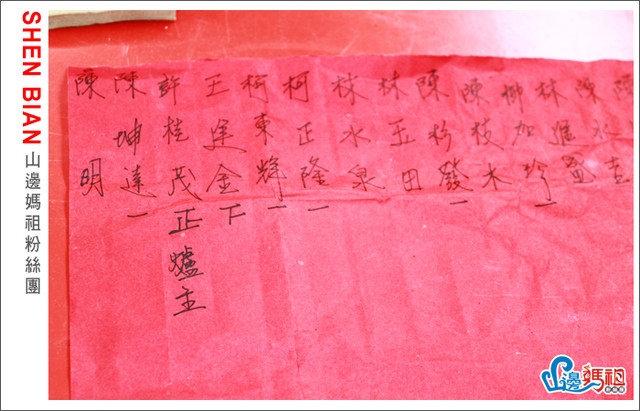 SHEN BIAN 山邊媽祖粉絲團
陳水吉
林進盛
柳加珍一
陳枝木
陳 發一
林玉田
林水泉
柯正隆一
柯東輝一
王逢金下
許桂茂正爐主
陳坤達一
陳明
山邊媽祖